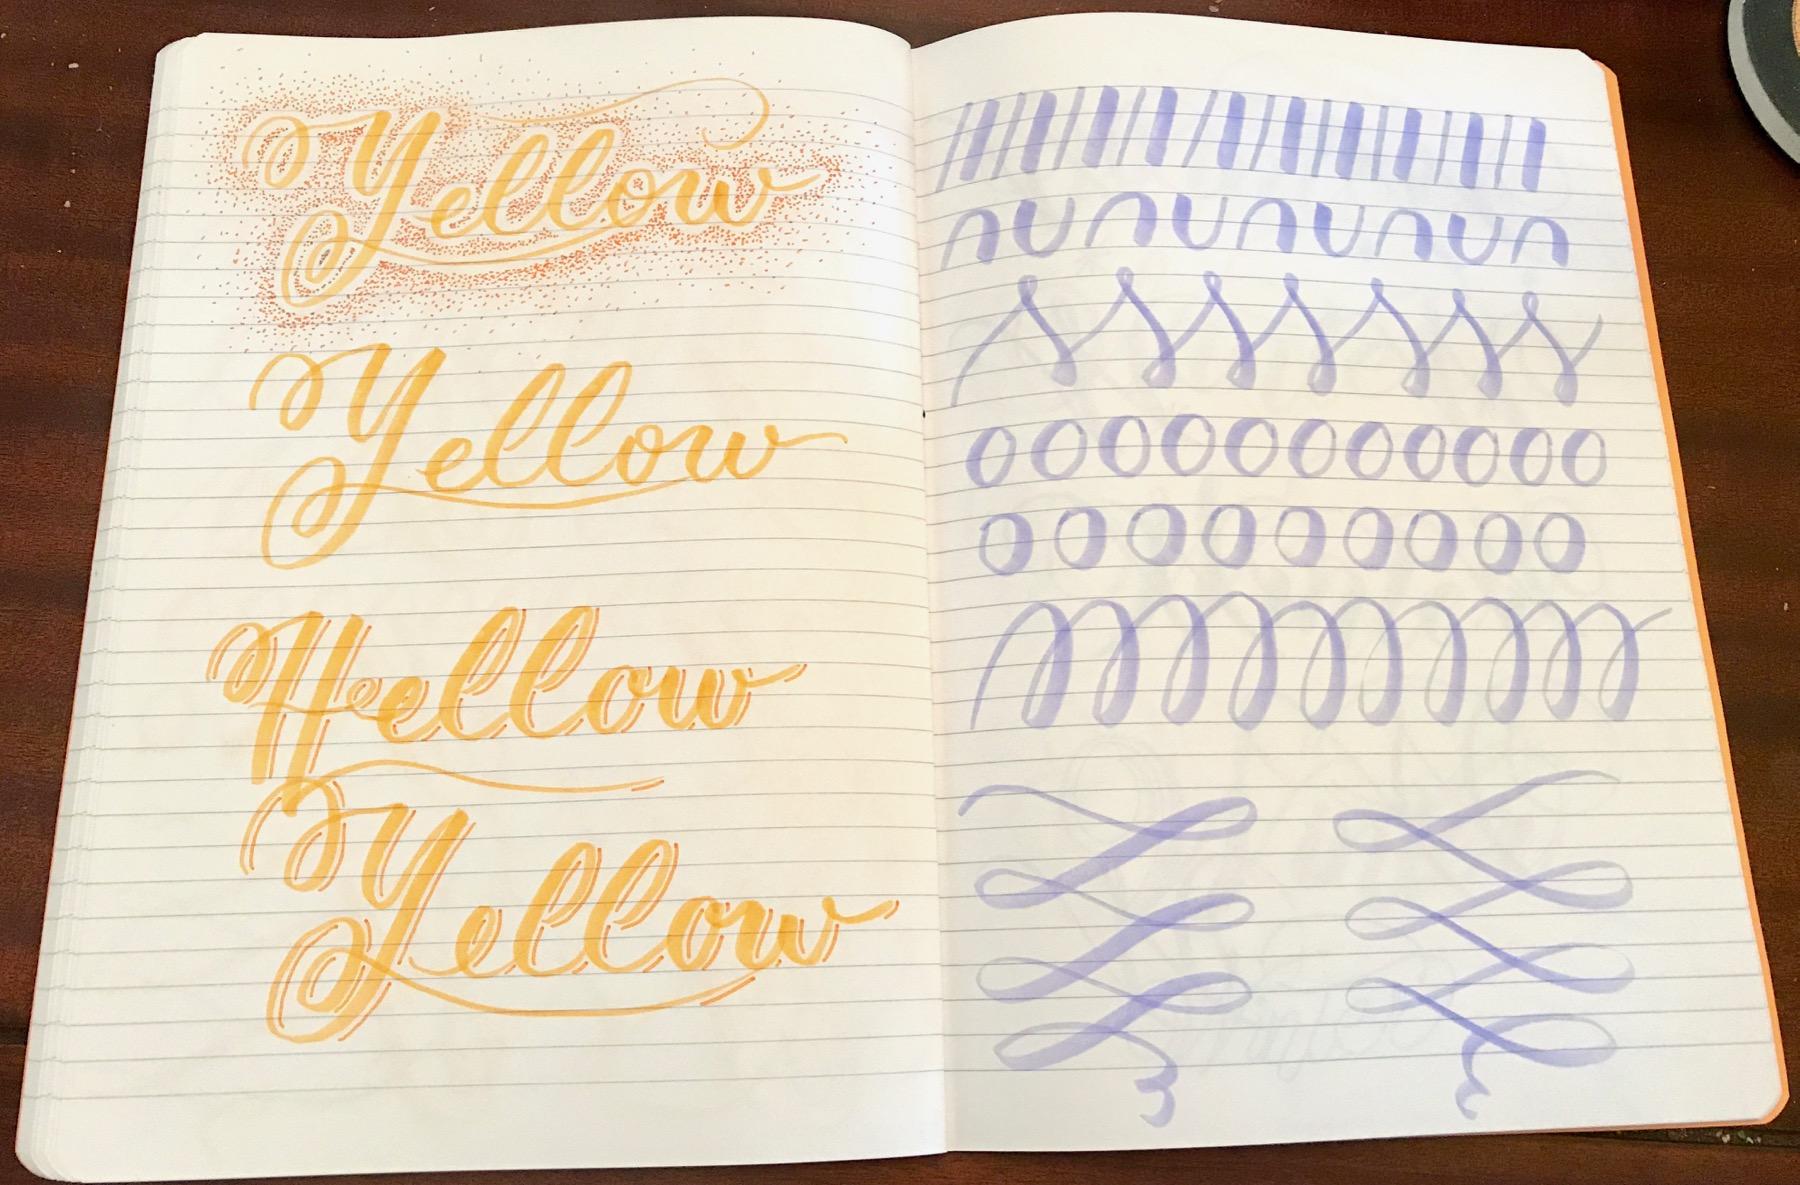 Yellow
Yellow
Hellow
Yellow